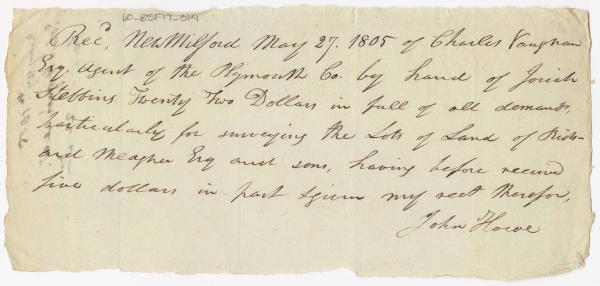 60-2SF17-S14
Recd, New Milford May 27. 1805 of Charles Vaughan
Esq. Agent of the Plymouth Co. by hand of Josiah
Stebbins Twenty Two Dollars in full of all demands,
particularly for surveying the Lots of Land of Rich-
ard Meagher Esq and sons, having before received
five dollars in part & given my rect therefor,
John Howe